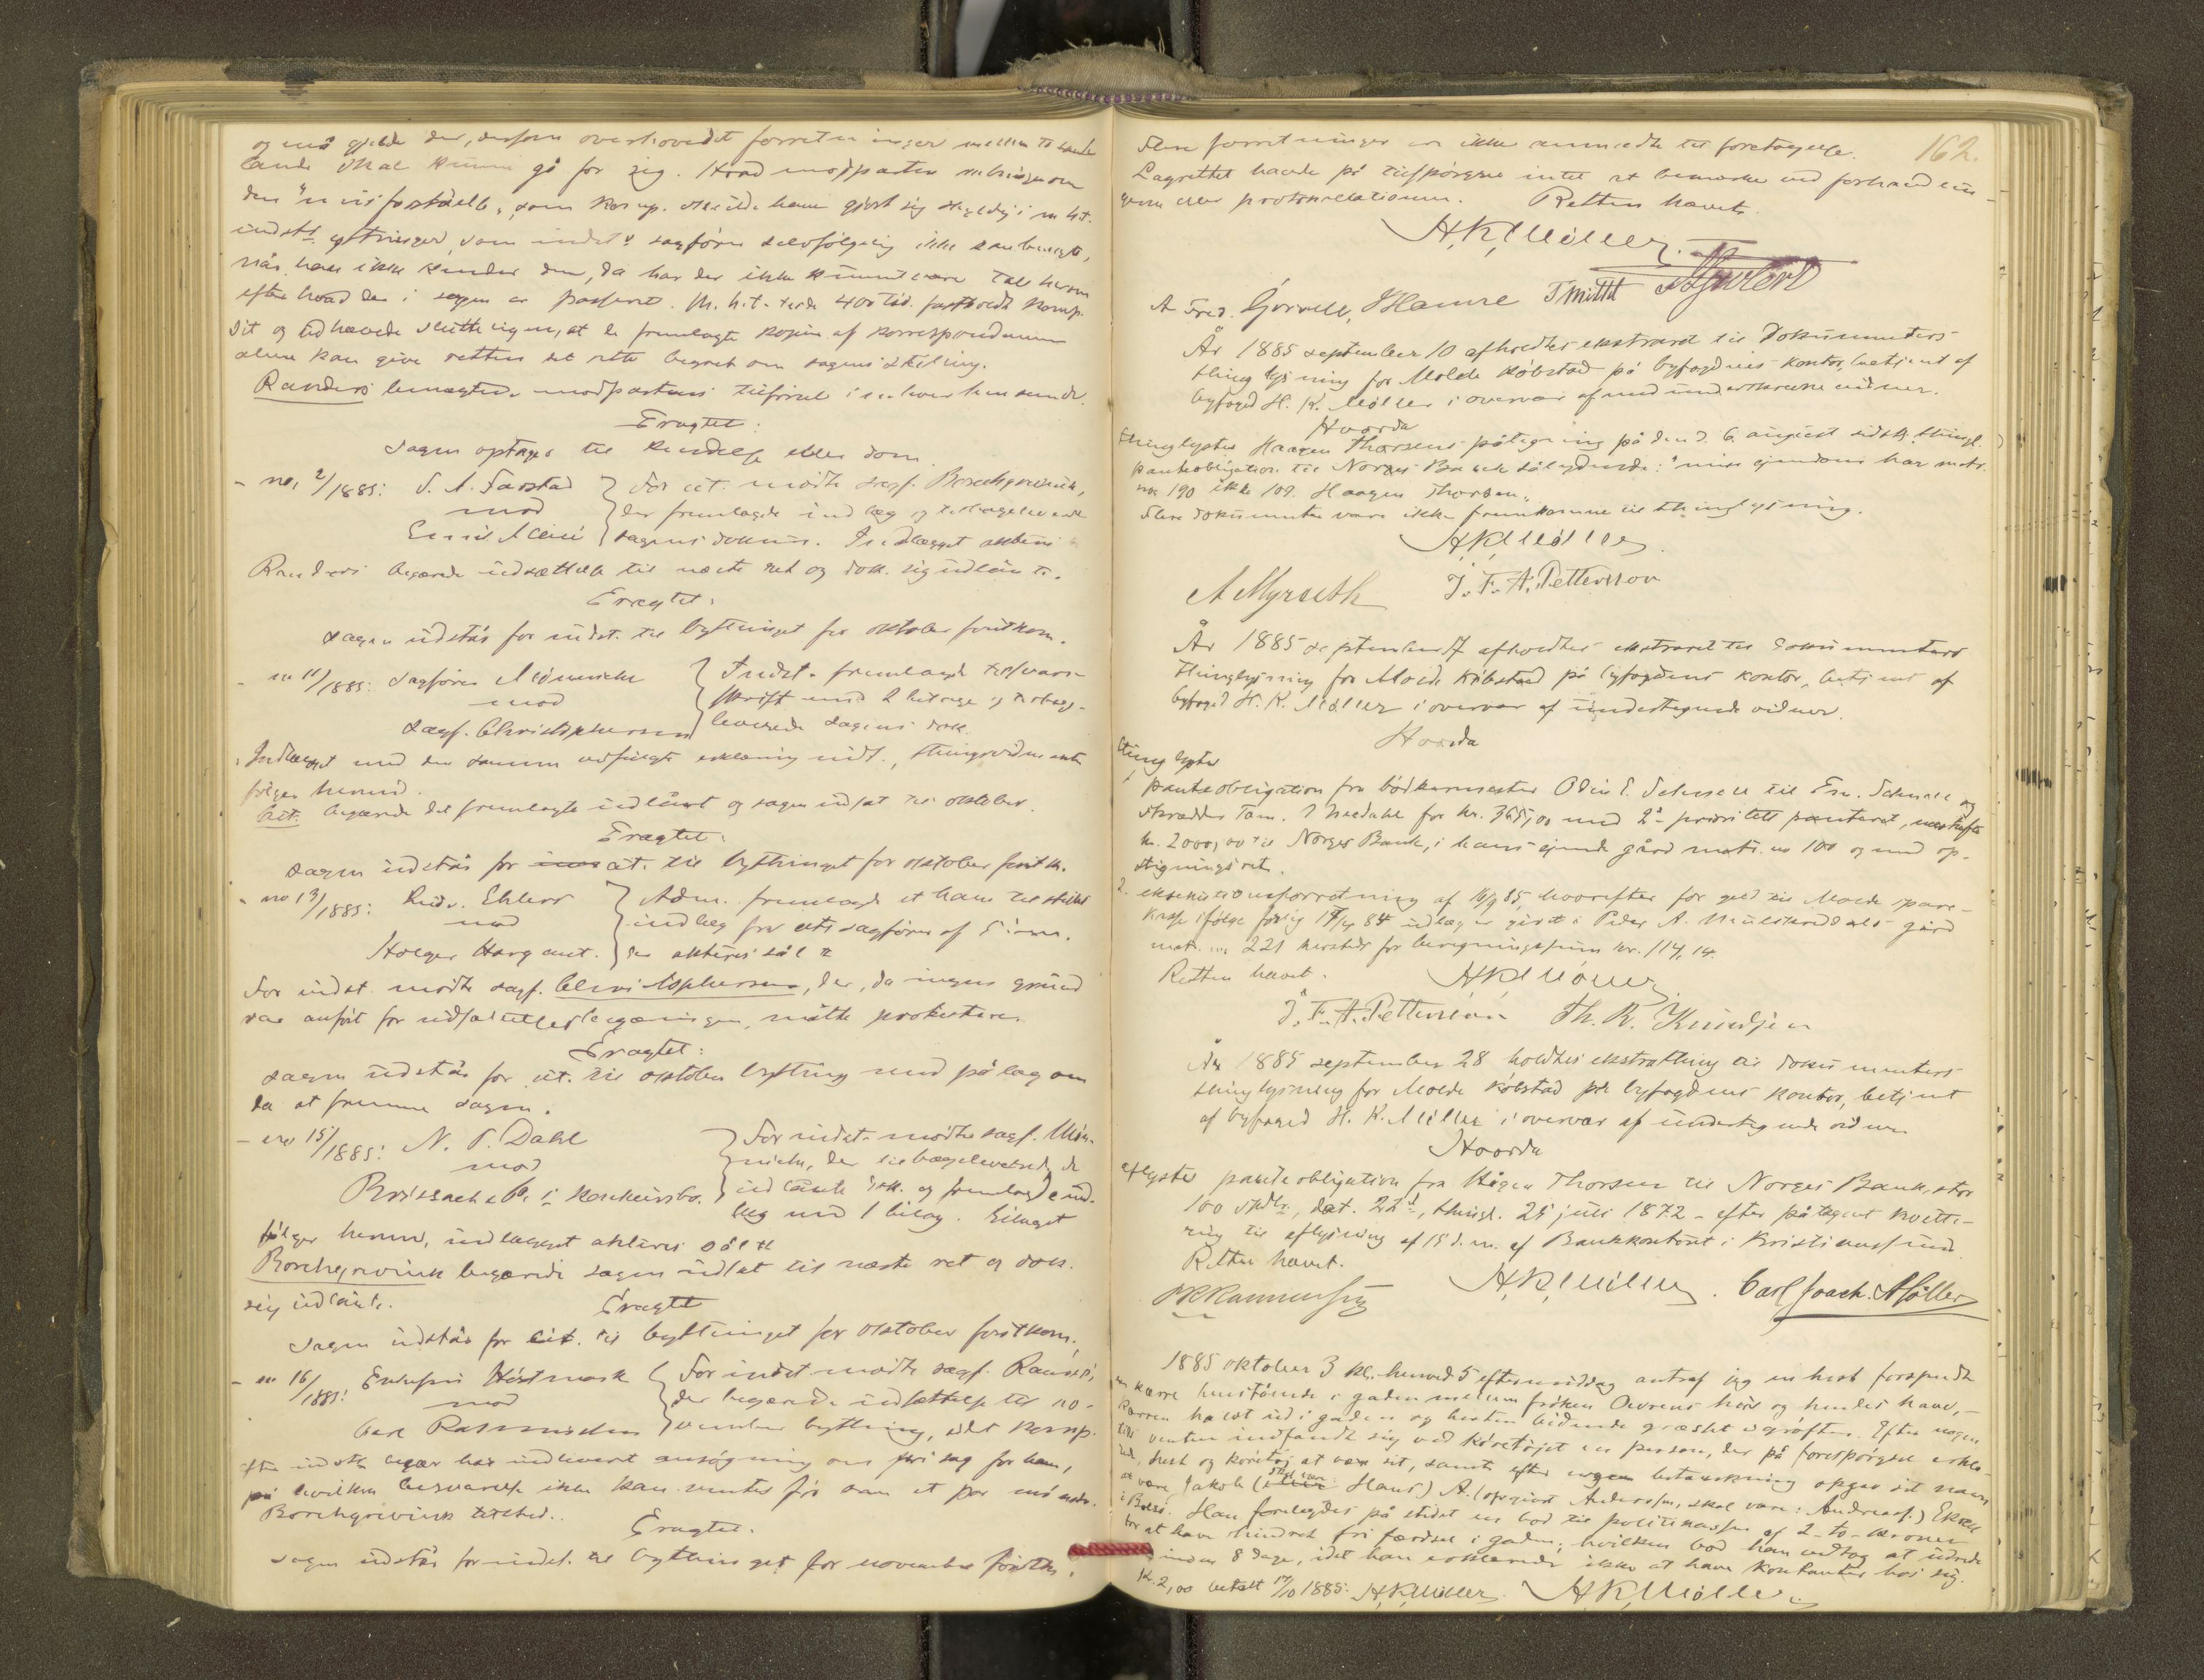 og må gjælde der, dersom overhovedet forretninger mellem to
lande skal kunne gå for sig. Hvad modparten
den som komp. have gjort sig skyldig i m. h. t.
indst. ytringer, som indst. sagfører selvfølgelig ikke
når han ikke kender dem, da har der ikke kunnet være tale herom
efter hvad der i sagen er passeret. M. h. t. fastholdt komp.
sit og udhævede sluttelig en, at de fremlagte kopier af korrespondancen
alene kan give retten det rette begreb om sagens stilling.
Randers benægtede modpartens tilførsel i enhver henseende.
Eragtet:
Sagen optages til kendelse eller dom.
- no. 2/1885: S. A. Farstad For cit. mødte sagf. Borchgrevink,
mod der fremlagde indlæg og tilbageleverede
sagens dokum. Indlægget akteres
Randers begærede udsættelse til næste ret og dok. sig udlånte.
Eragtet:
Sagen udstår for indst. til bytinget for oktober førstkom.
- no 11/1885: Sagfører Mønniche Indst. fremlagde tilsvars-
mod skrift med 2 bilage og tilbage-
sagf. Christophersen leverede sagens dok.
Indlægget med den samme vedføiede erklæring
følger herved.
Cit. begærede det fremlagte indlånt og sagen udsat til oktober.
Eragtet:
Sagen udstår for cit. til bytinget for oktober førstk.
- no 13/1885: Ehlers Adm. fremlagde et ham tilstillet
mod indlæg fra cits sagfører af
Holger der akteres sål
For indst. mødte sagf. Christophersen, der, da ingen grund
var anført for udsættelsesbegæringen, måtte protestere.
Eragtet:
Sagen udstår for cit. til oktober byting med pålæg om
da at fremme sagen.
- no 15/1885: N. P. Dahl For indst. mødte sagf. Møn-
mod niche, der tilbageleverede de
& Co. i konkursbo. udlånte dok. og fremlagde ind-
læg med 1 bilag. Bilaget
følger herved, indlægget akteres
Borchgrevink begærede sagen udsat til næste ret og dok.
sig udlånte. Eragtet
Sagen udstår for cit. til bytinget for oktober førstkom.
- no 16/1885: Høstmark For indst mødte sagf. Randers,
mod der begærede udsættelse til no-
Carl Rasmussen vember byting, idet komp.
efter indst begær har indleveret ansøgning om fri sag for ham,
på hvilken besvarelse ikke kan ventes før om et par måneder.
Borchgrevink tilsted.. Eragtet.
Sagen udstår for indst. til bytinget for november førstk.
162.
Flere forretninger er ikke anmeldte til foretagelse.
Lagrettet havde på tilspørgsel intet at bemærke ved forhandlin-
gerne eller protokollationen. Retten hævet.
H. K. Møller.
A Fred. Gørvell, Hamre
År 1885 september 10 afholdtes ekstraret til dokumenters
thinglysning for Molde købstad på byfogdens kontor, betjent af
byfoged H. K. Møller i overvær af medunderskrevne vidner.
Hvorda
thinglystes Haagen Thorsens påtegning på den d. 6 august sidstl. thingl.
panteobligation til Norges Bank sålydende: "min ejendom har matr.
no 190 ikke 109. Haagen Thorsen".
Flere dokumenter vare ikke fremkomne til thinglysning.
H. K. Møller
A Myrseth J. F. A. Petterson
År 1885 september 17 afholdtes ekstraret til dokumenters
thinglysning for Molde købstad på byfogdens kontor, betjent af
byfoged H. K. Møller i overvær af undertegnede vidner.
Hvorda
thinglystes
panteobligation fra bødkermester til og
skrædder for kr. 365,00 med 2den prioritets panteret, næstefter
kr. 2000,00 til Norges Bank, i hans ejende gård matr. no 100 og med op-
stigningsret.
2. eksekutionsforretning af 16/9 85, hvorefter for gæld til Molde spare-
kasse ifølge forlig udlæg er givet i Peder A. gård
matr. no 221 herstds for beregningssum kr. 114,14.
Retten hævet. H. K. Møller
J. F. A. Petterson Th. R. Knudsen
År 1885 september 28 holdtes ekstrathing til dokumenters
thinglysning for Molde købstad på byfogdens kontor, betjent
af byfoged H. K. Møller i overvær af undertegnede vidner
Hvorda
aflystes panteobligation fra Hågen Thorsen til Norges Bank, stor
100 spdlr., dat. 22d, thingl. 25 juli 1872 - efter påtegnet kvitte-
ring til aflysning af 15 d. m. af Bankkontoret i Kristiansund.
Retten hævet.
H. K. Møller. Carl Joach. Møller
1885 oktober 3 kl. henved 5 eftermiddag antraf jeg en hest forspændt
en kærre henstående i gaden mellem frøken hus og hendes have, -
kærren halvt ud i gaden og hesten bidende græsset i grøften. Efter nogen
tids venten indfandt sig ved køretøjet en person, der på forespørgsel erklæ-
rede, hest og køretøj at være sit, samt efter nogen betænkning opgav sit navn
at være Jakob (skal være: Hans) A. (opgivet Andersen, skal være: Andreas.)
i Bolsø. Han forelagdes på stedet en bod til politikassen af 2 - to - kroner
for at have hindret fri færdsel i gaden, hvilken bod han vedtog at udrede
inden 8 dage, idet han erklærede ikke at have kontanter hos sig.
Kr. 2,00 betalt 17/10 1885. H. K. Møller. H. K. Møller.